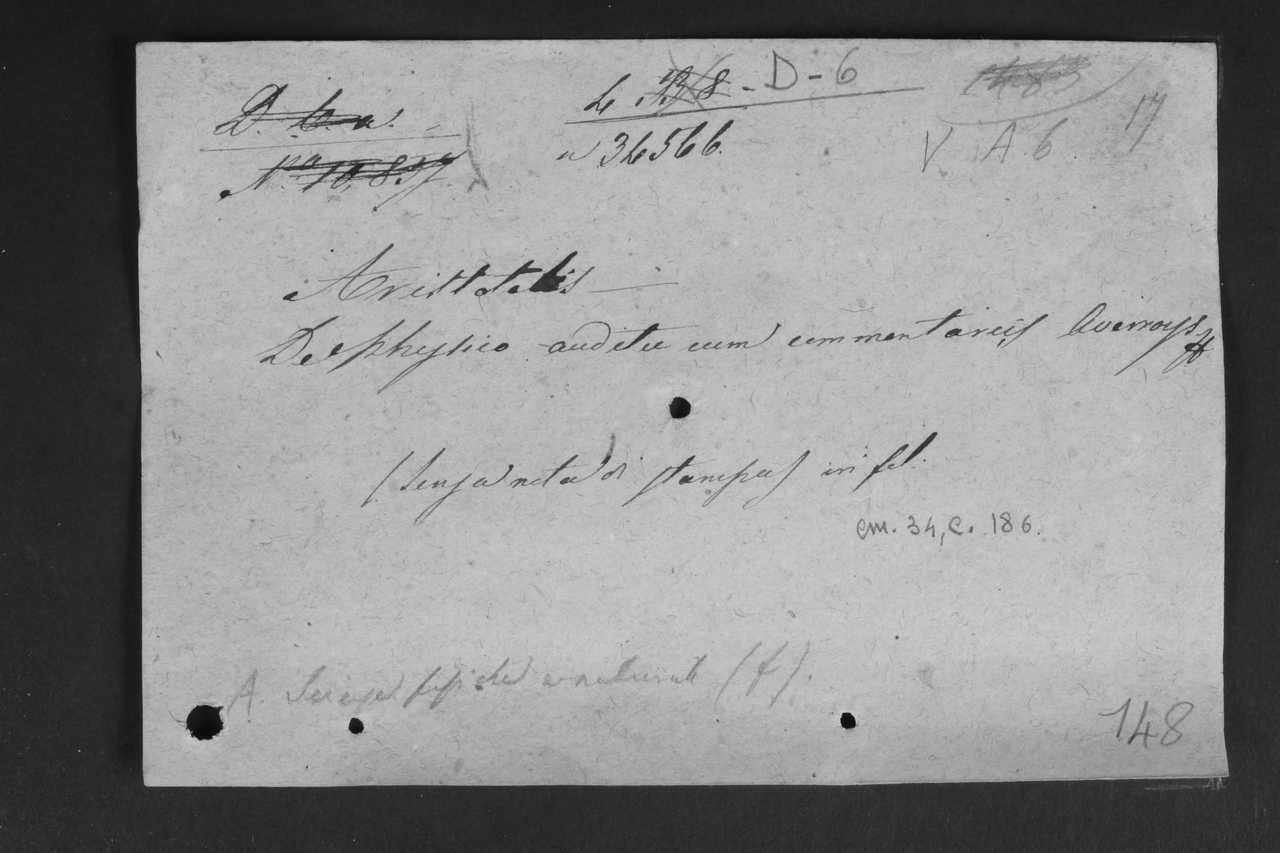 D. b. a. L. 33 8 - D-6
Nº 10,837 n 34566. V A 6 17
Aristotelis —
De Physico auditu cum commentariis Averroys
(senza nota di stampa) in fol.
cm. 34, c. 186.
A. (f).
148